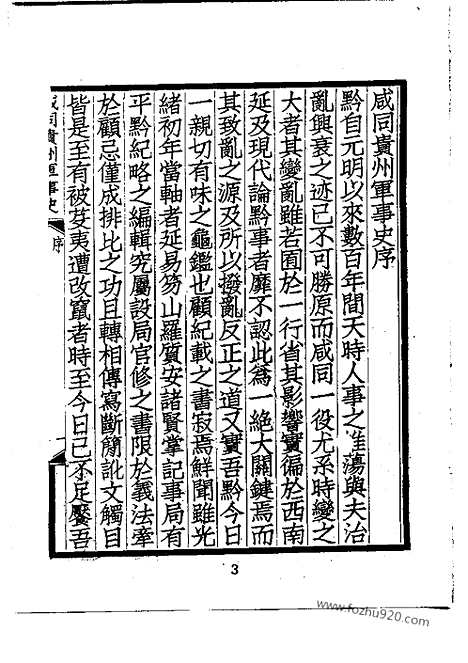 咸同貴州軍事史序
黔自元明以來數百年間天時人事之推蕩與夫治
亂興衰之迹已不可勝原而咸同一役尤系時變之
大者其變亂雖若囿於一行省其影響實徧於西南
延及現代論黔事者靡不認此為一絕大關鍵焉而
其致亂之源及所以撥亂反正之道又實吾黔今日
一親切有味之龜鑑也顧紀載之書寂焉鮮聞雖光
緒初年當軸者延易笏山羅質安諸賢掌記事局有
平黔紀略之編輯究屬設局官修之書限於義法牽
於顧忌僅成排比之功且轉相傳寫斷簡訛文觸目
皆是至有被芟夷遭改竄者時至今日已不足饜吾
咸同貴州軍事史
序
一
3
www.fozhu920.com